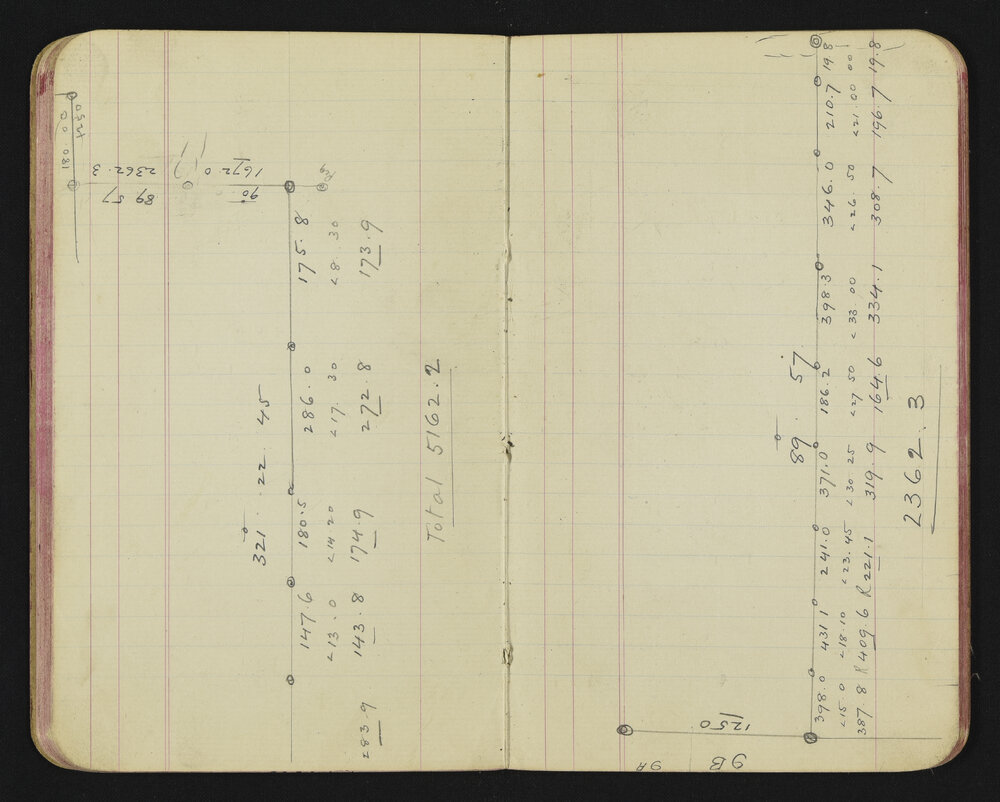 180 00
1250
2362.3
89 57
1672 0
90°
321° 22 45
147.6 180.5 286.0 175.8
<13.0 <14.20 <17.30 <8.30
283.9 143.8 174.9 272.8 173.9
Total 5162.2
89° 57
398.0 431.1 241.0 371.0 186.2 398.3 346.0 210.7 19.8
<15.0 <18.10 <23.45 <30 25 <27 50 <33 00 <26 50 <21 00 00
387.8 R 409.6 R 221.1 319.9 164.6 334.1 308.7 196.7 19.8
2362.3
1250
9A 9B